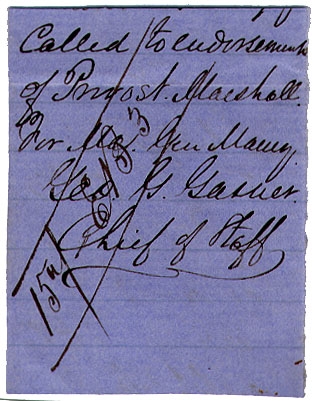 Called to endorsement
of Provost Marshall.
For Maj. Gen Maury
Geo. G. Garner.
Chief of Staff